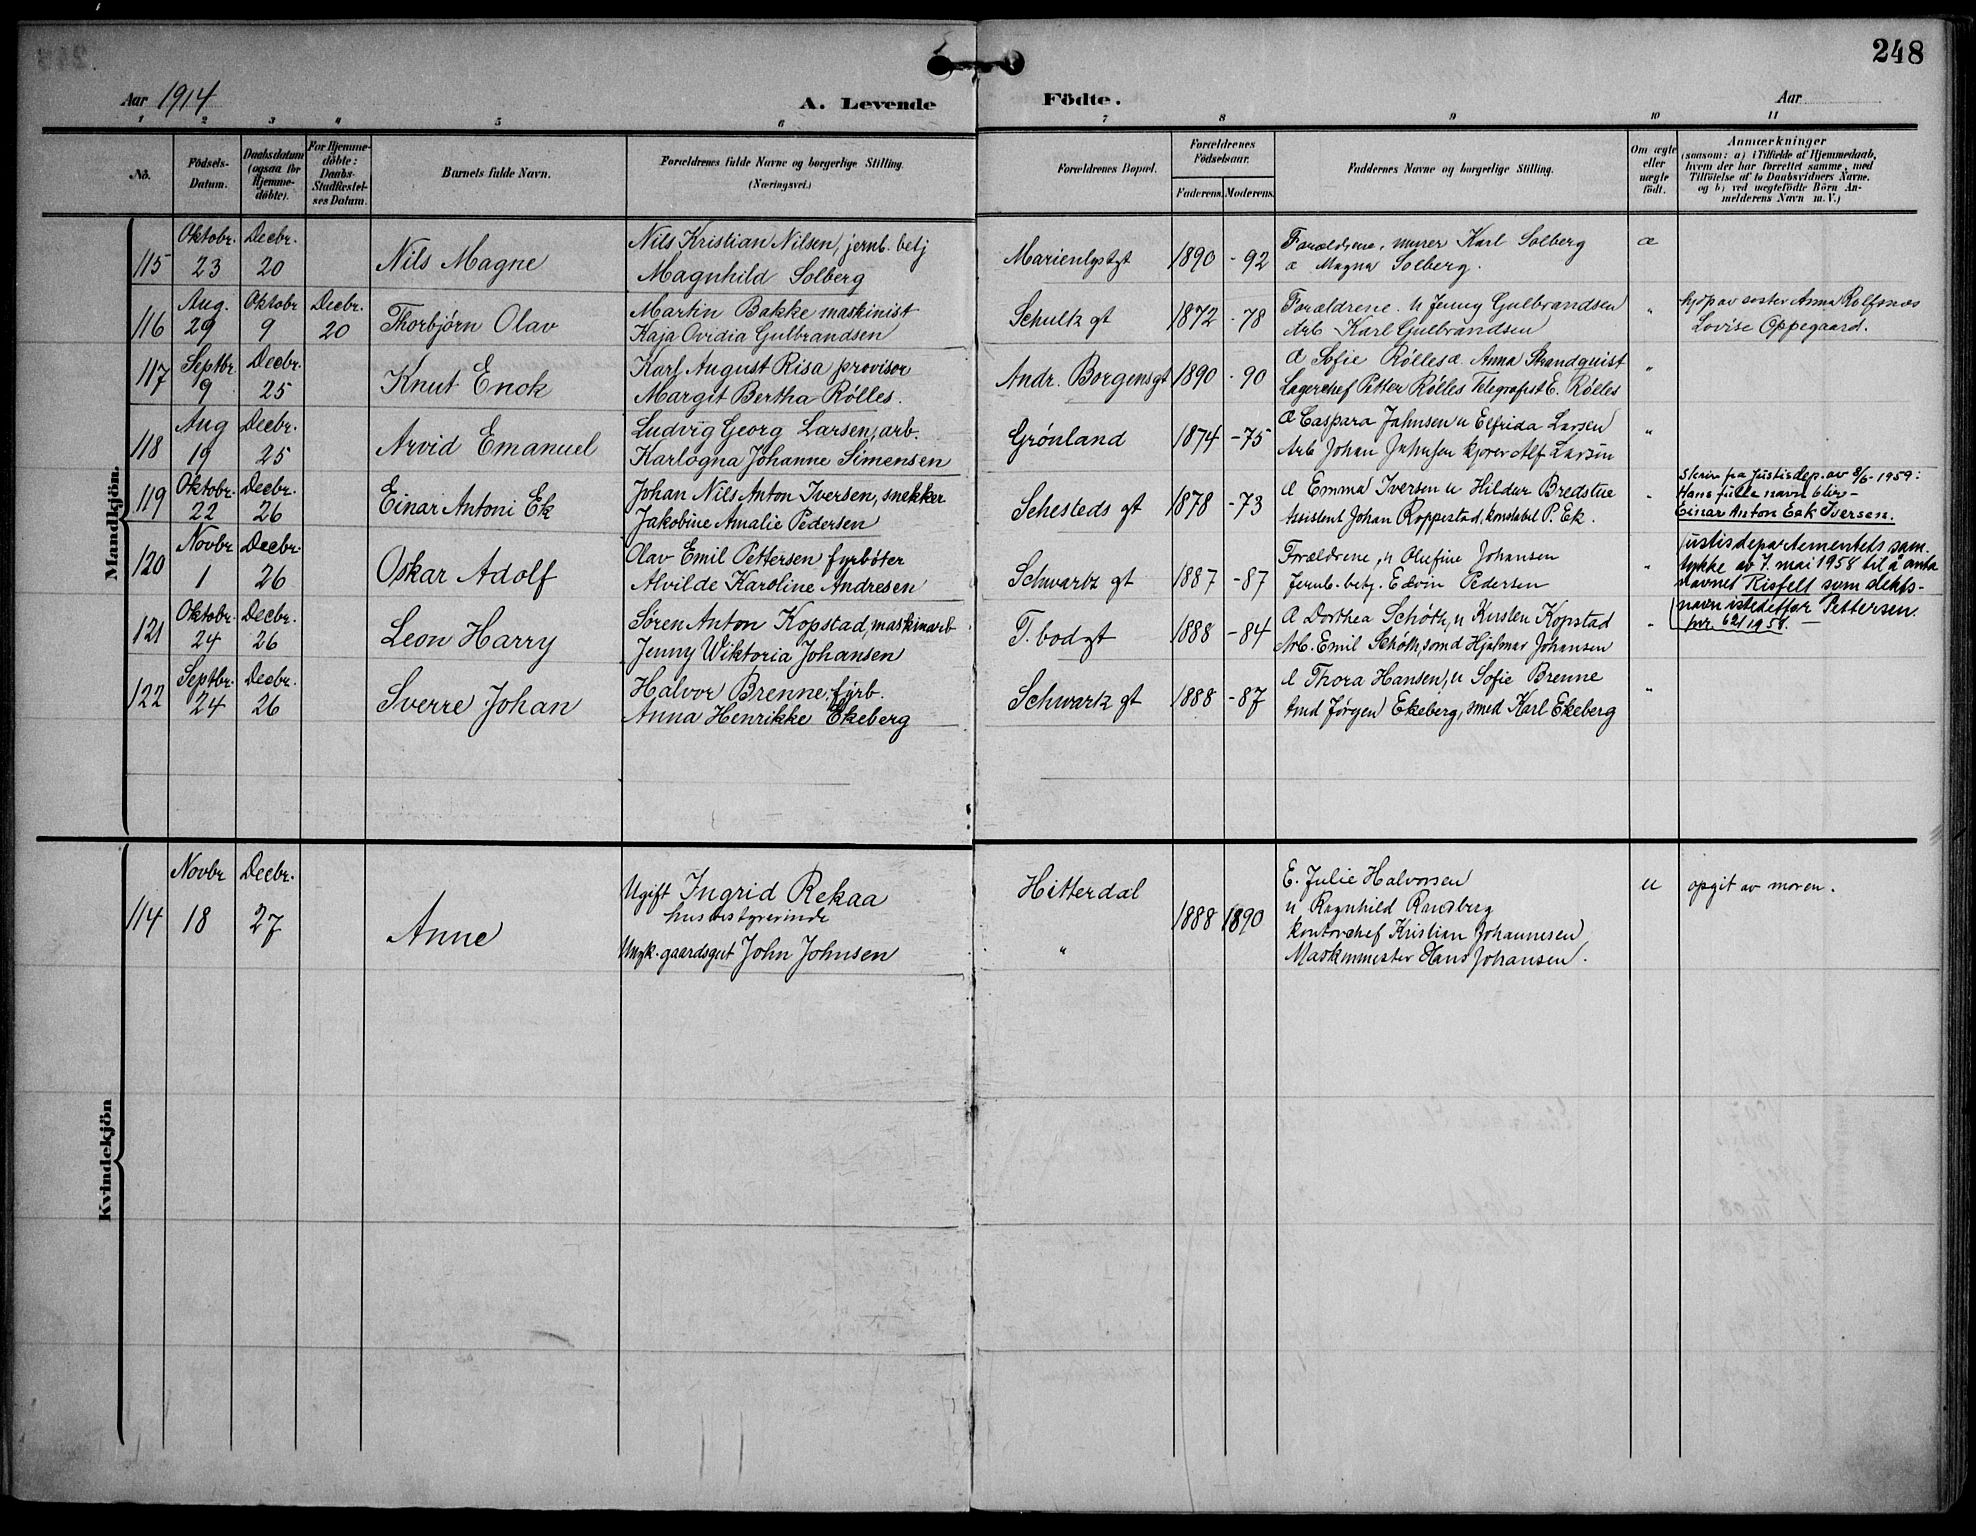 248
Aar 1914
A. Levende
Födte.
Aar
1 2 3 4 5 6 7 8 9 10 11
No. Födsels-Datum. Daabsdatum (ogsaa for Hjemme-döbte). For Hjemme-döbte: Daabs-Stadfæstel-ses Datum. Barnets fulde Navn. Forældrenes fulde Navne og borgerlige Stilling. (Næringsvei.) Forældrenes Bopæl. Forældrenes Födselsaar. Faderens. Moderens. Faddernes Navne og borgerlige Stilling. Om ægte eller uægte födt. Anmærkninger (saasom: a) i Tilfælde af Hjemmedaab, hvem der har forrettet samme, med Tilföielse af to Daabsvidners Navne, og b) ved uægtefödte Börn An-melderens Navn m. V.)
Mandkjön.
Oktobr. Decbr. Nils Kristian Nilsen, jernb. betj Forældrene, murer Karl Solberg æ
115 23 20 Nils Magne Magnhild Solberg Marienlystgt 1890 - 92 Magna Solberg.
Aug. Oktobr Decbr. Martin Bakke maskinist Forældrene. u Jenny Gulbrandsen " hjdp av søster Anna Rolfsnæs
116 29 9 20 Thorbjørn Olav Kaja Ovidia Gulbrandsen Schultz gt 1872 -78 Arb Karl Gulbrandsen Lovise Oppegaard.
Septbr Decbr. Karl August Risa provisor Sofie Rølles Anna Strandquist "
117 9 25 Knut Enok Margit Bertha Rølles. Andr. Borgensgt 1890 - 90 Lagerchef Petter Rølles Telegrafist E. Rølles
Aug Decbr. Ludvig Georg Larsen, arb. Caspara Jahnsen u Elfrida Larsen "
118 19 25 Arvid Emanuel Karlogna Johanne Simensen Grønland 1874 -75 Arb Johan Jahnsen kjører Alf Larsen
Oktobr. Decbr. Johan Nils Anton Iversen, snekker Emma Iversen u Hildur Bredstue " Skriv fra Justisdep. av 8/6-1959:
119 22 26 Einar Antoni Ek Jakobine Amalie Pedersen Schesteds gt 1878 -73 Assistent Johan Roppestad, konstabel P. Ek. Hans fulle navn blir - Einar Anton Eek Iversen.
Novbr Decbr. Olav Emil Pettersen fyrbøter Forældrene, u Olufine Johansen " Justisdepartementets sam-
120 1 26 Oskar Adolf Alvilde Karoline Andresen Schwartz gt 1887 -87 Jernb. betj. Edvin Pedersen tykke av 7. mai 1958 til å anta navnet Risfelt som slekts-
Oktobr. Decbr. Søren Anton Kopstad, maskinarb Dorthea Schøth, u Kirsten Kopstad " navn istedetfor Pettersen.
121 24 26 Leon Harry Jenny Wiktoria Johansen T. bodgt 1888 -84 Arb. Emil Schøth, smed Hjalmar Johansen 621 1958. —
Septbr. Decbr. Halvor Brenne, fyrb. Thora Hansen, u Sofie Brenne "
122 24 26 Sverre Johan Anna Henrikke Ekeberg Schwartz gt 1888 -87 Smd Jørgen Ekeberg, smed Karl Ekeberg
Kvindekjön
Novbr Decbr. Ugift Ingrid Rekaa Hitterdal E. Julie Halvorsen u opgit av moren.
husbestyrerinde u Ragnhild Randberg
114 18 27 Anne 1888 1890 kontorchef Kristian Johannesen
Ungk. gaardsgut John Johnsen " Maskinmester Hans Johansen.